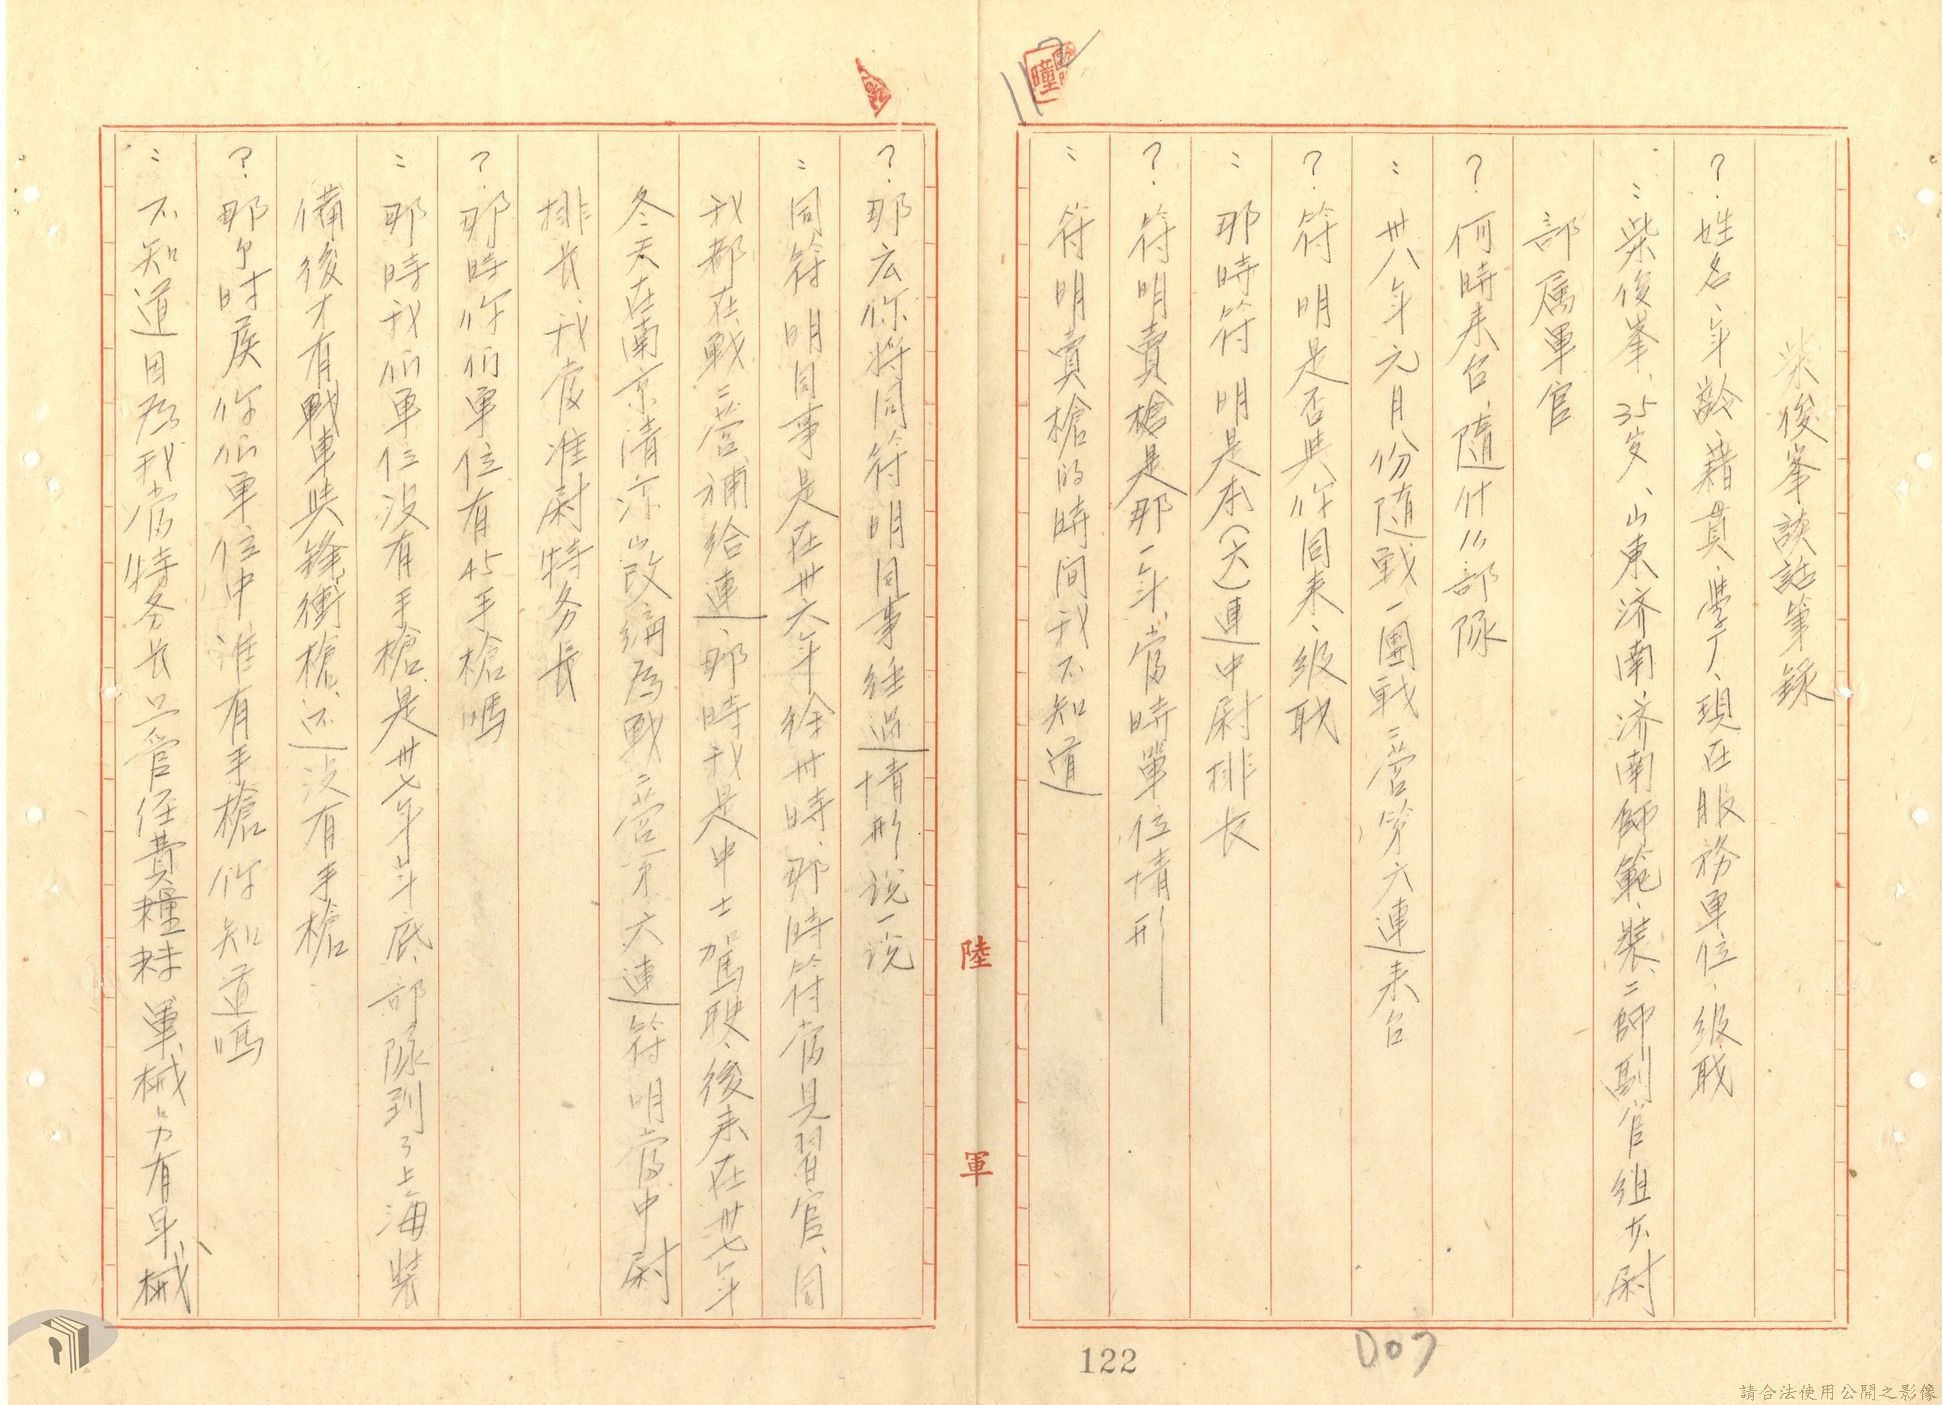 柴俊峯談話筆錄
？姓名、年齡、藉貫、學厂、現在服務單位、級職
：柴俊峯、35岁、山東济南、济南師範、裝二師副官組少尉
部属軍官
？何時来台、隨什么部隊
：卅八年元月份隨戰一團戰二营第六連来台
？符明是否與你同来、級耺
：那時符明是本(六)連中尉排長
？符明賣槍是那一年、當時單位情形
：符明賣槍的時间我不知道
？那広你將同符明同事経過情形说一说
：同符明同事是在卅六年徐卅時、那時符當見習官、同
我都在戰二营補给連、那時我是中士駕駛、後来在卅七年
冬天在南京清凉山改编為戰二营第六連符明當中尉
排長、我虔准尉特务長
？那時你们軍位有45手槍嗎
：那時我们单位没有手槍是卅七年年底部隊到了上海裝
備後才有戰車與鋒衝槍、还没有手槍
？那个时侯你们单位中准有手槍你知道嗎
：不知道因為我當特务長只管经費糧秣軍械只有早械
陸軍
122
D07
請合法使用公開之影像